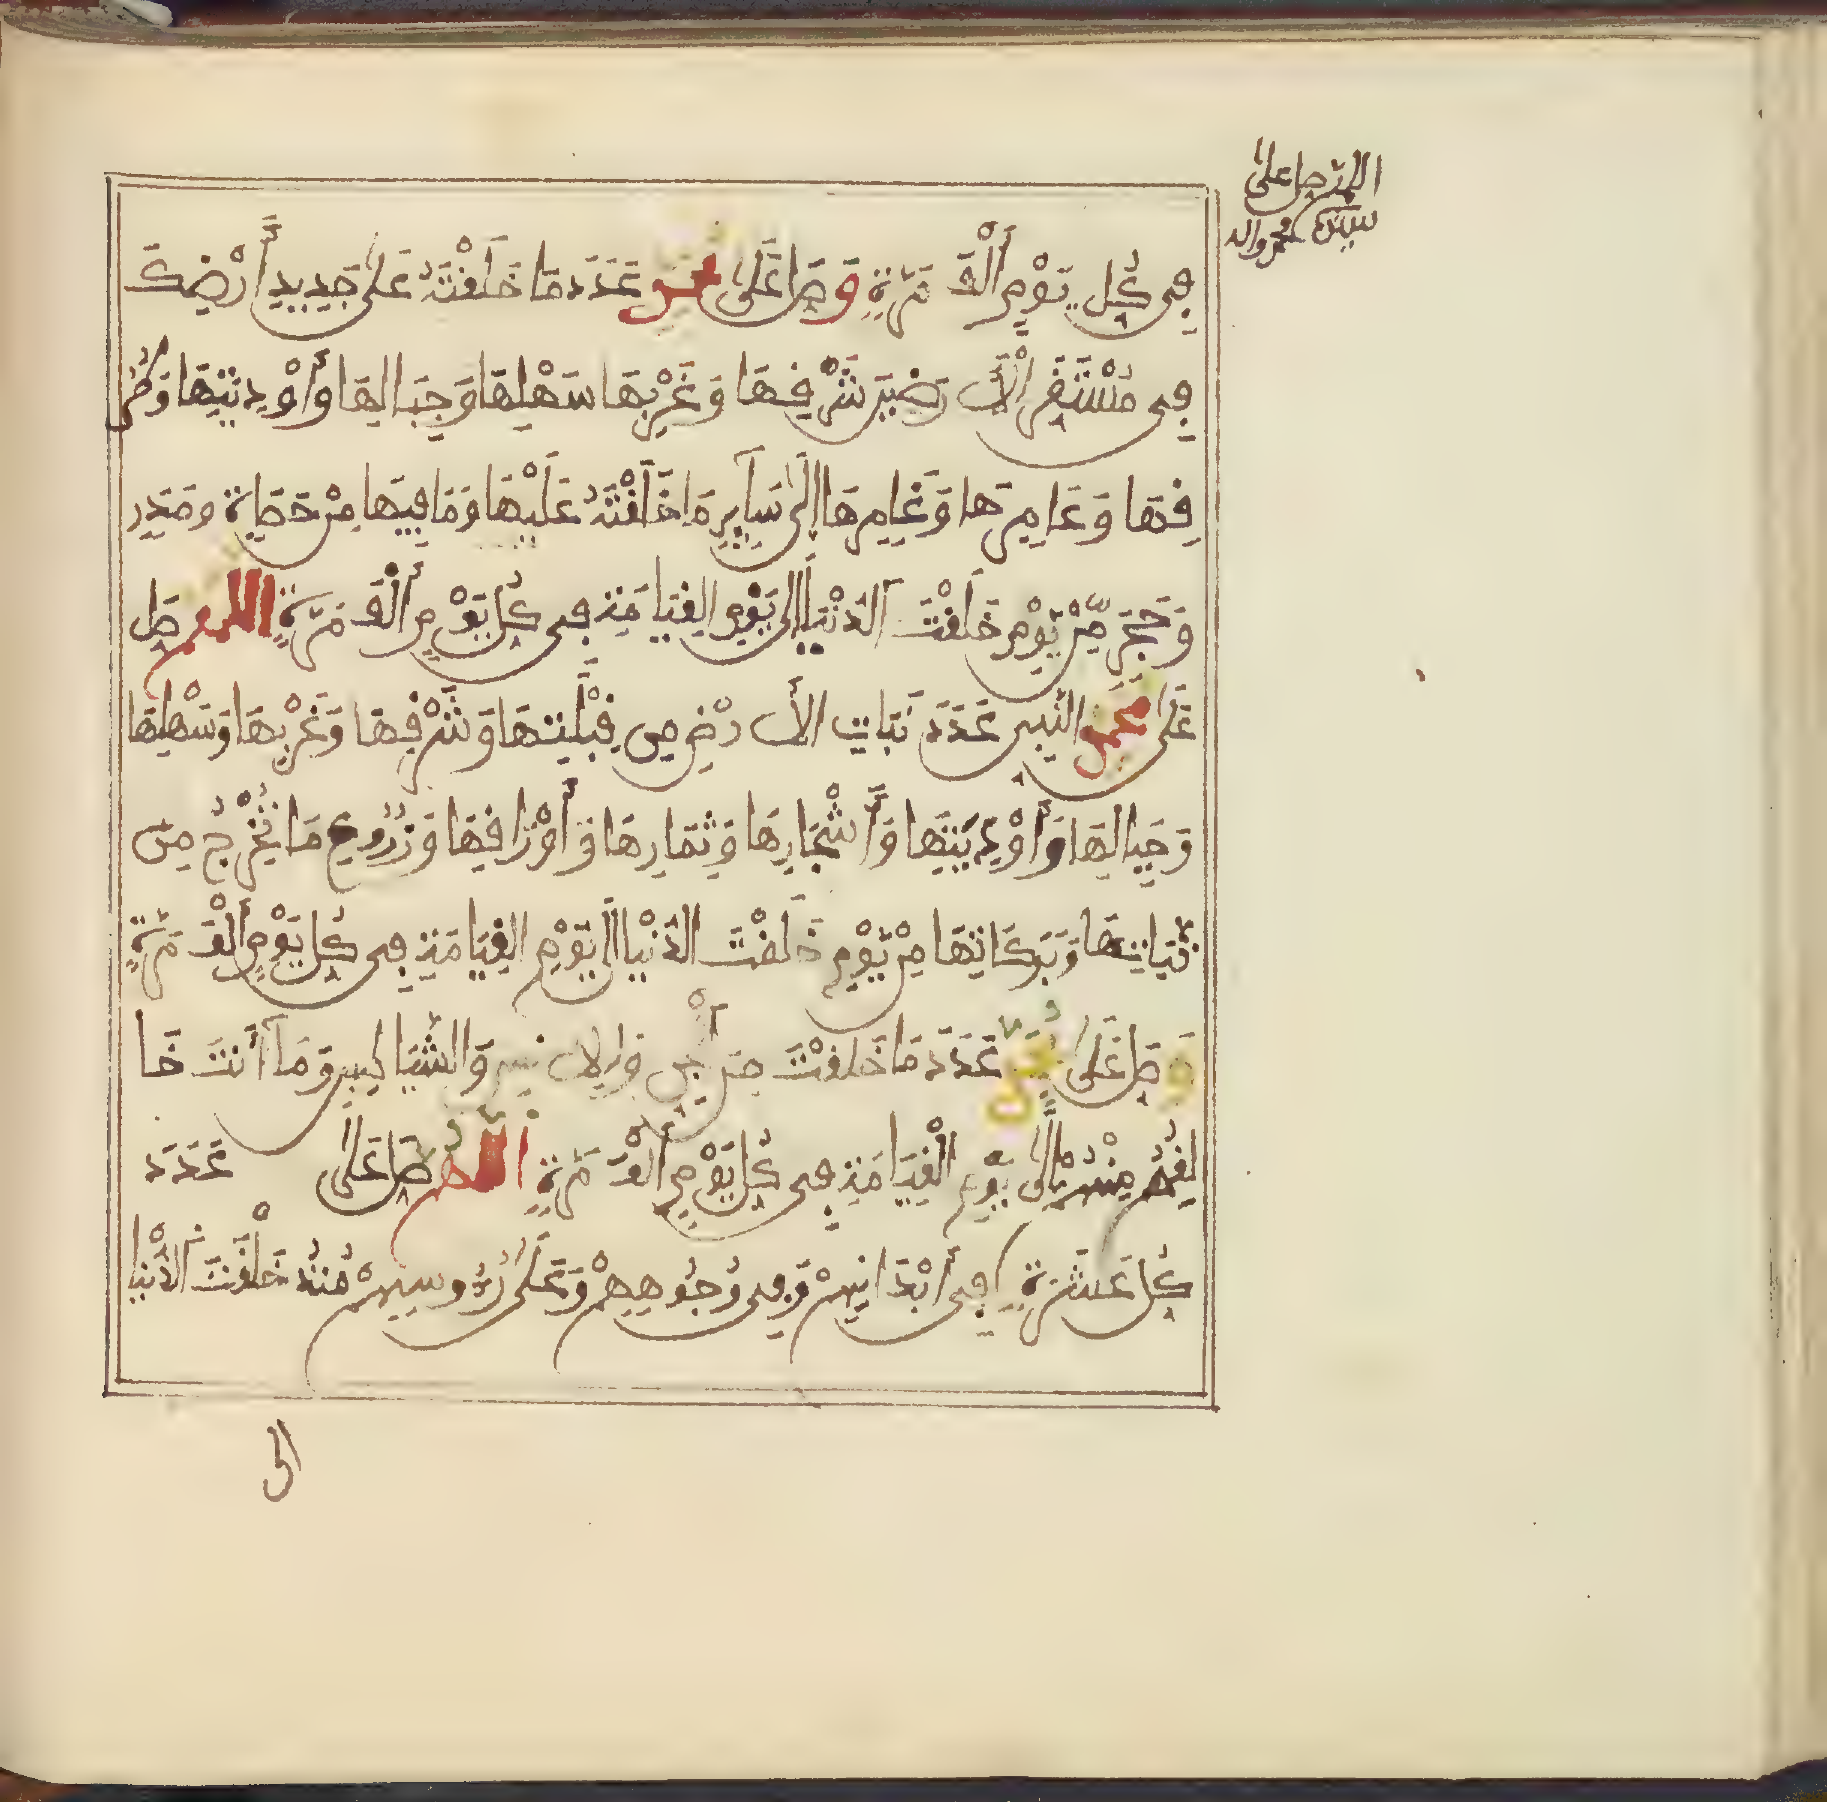 اللهم صل على
سيدنا محمد واله
فِى كُلِّ يَوْمٍ أَلْفَ مَرَّةٍ وَصَلِّ عَلَى مُحَمَّدٍ عَدَدَ مَا خَلَقْتَهُ عَلَى جَدِيدِ أَرْضِكَ
فِى مُسْتَقَرِّ الْأَرَضِينَ شَرْقِهَا وَغَرْبِهَا سَهْلِهَا وَجِبَالِهَا وَأَوْدِيَتِهَا وَطُرُ
قِهَا وَعَامِرِهَا وَغَامِرِهَا إِلَى سَآيِرِ مَا خَلَقْتَهُ عَلَيْهَا وَمَا فِيهَا مِنْ حَصَاةٍ وَمَدَرٍ
وَحَجَرٍ مِّنْ يَوْمِ خَلَقْتَ الدُّنْيَا إِلَى يَوْمِ الْقِيَامَةِ فِى كُلِّ يَوْمٍ أَلْفَ مَرَّةٍ اللَّهُمَّ صَلِّ
عَلَى مُحَمَّدٍ النَّبِىِّ عَدَدَ نَبَاتِ الْأَرْضِ مِن قِبْلَتِهَا وَشَرْقِهَا وَغَرْبِهَا وَسَهْلِهَا
وَجِبَالِهَا وَأَوْدِيَتِهَا وَأَشْجَارِهَا وَثِمَارِهَا وَأَوْرَاقِهَا وَزُرُوعِ مَا يَخْرُجُ مِن
نَّبَاتِهَا وَبَرَكَاتِهَا مِنْ يَوْمِ خَلَقْتَ الدُّنْيَا إِلَى يَوْمِ الْقِيَامَةِ فِى كُلِّ يَوْمٍ أَلْفَ مَرَّةٍ
وَصَلِّ عَلَى مُحَمَّدٍ عَدَدَ مَا خَلَقْتَ مِنَ الْجِنِّ وَالْإِنسِ وَالشَّيَاطِينِ وَمَا أَنتَ خَا
لِقُهُ مِنْهُمْ إِلَى يَوْمِ الْقِيَامَةِ فِى كُلِّ يَوْمٍ أَلْفَ مَرَّةٍ اللَّهُمَّ صَلِّ عَلَى عَدَدَ
كُلِّ شَعْرَةٍ فِى أَبْدَانِهِمْ وَفِى وُجُوهِهِمْ وَعَلَى رُءُوسِهِمْ مُنْذُ خَلَقْتَ الدُّنْيَا
الى